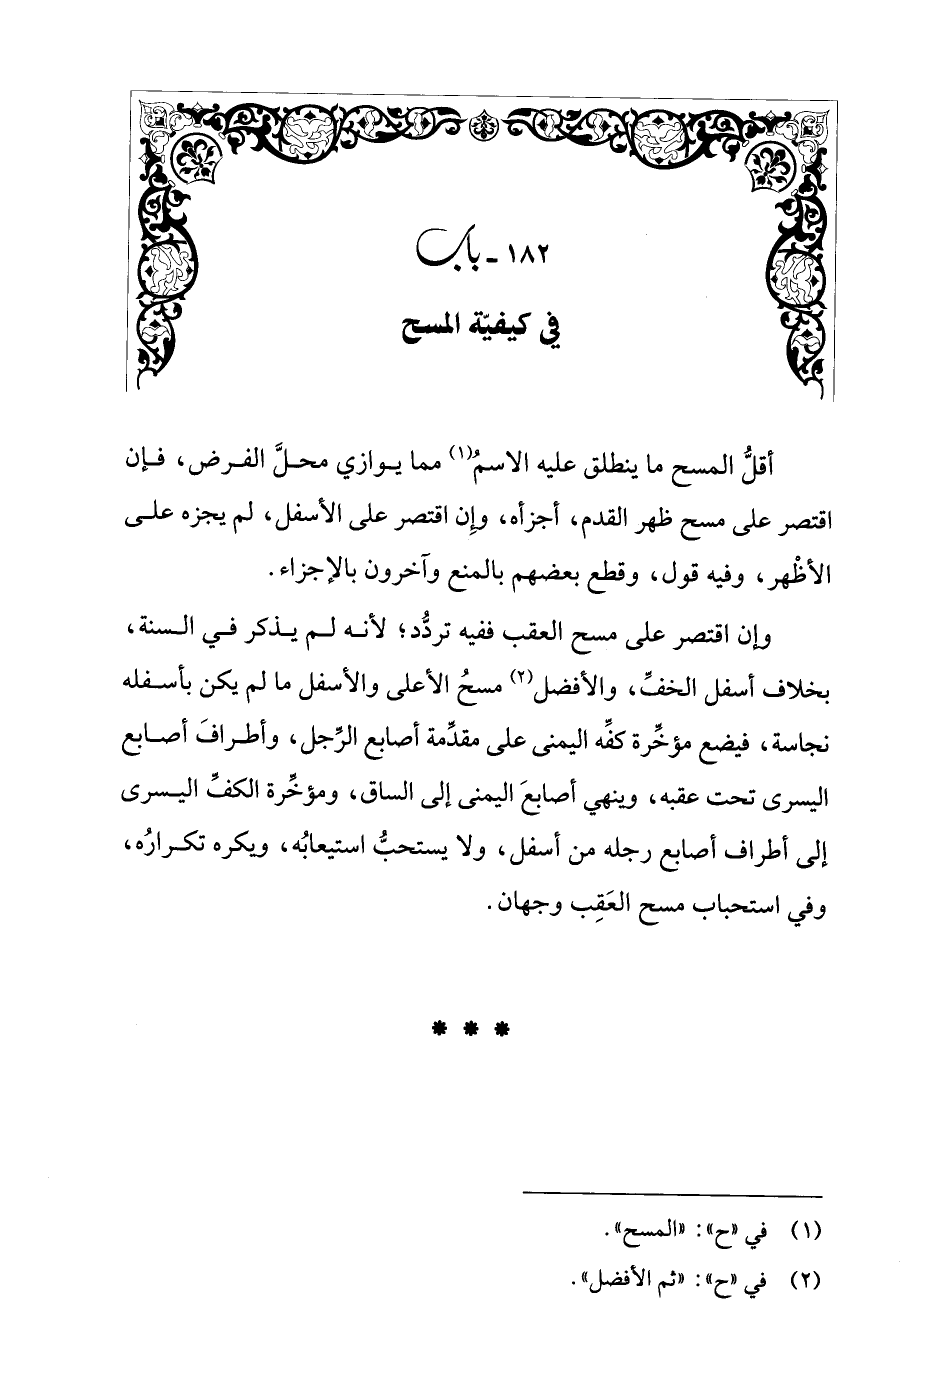 ١٨٢ - باب
في كيفيّة المسح
أقلُّ المسح ما ينطلق عليه الاسمُ(١) مما يوازي محلَّ الفرض، فإن
اقتصر على مسح ظهر القدم، أجزأه، وإِن اقتصر على الأسفل، لم يجزه على
الأظْهر، وفيه قول، وقطع بعضهم بالمنع وآخرون بالإجزاء.
وإن اقتصر على مسح العقب ففيه تردُّد؛ لأنه لم يذكر في السنة،
بخلاف أسفل الخفِّ، والأفضل(٢) مسحُ الأعلى والأسفل ما لم يكن بأسفله
نجاسة، فيضع مؤخِّرة كفِّه اليمنى على مقدِّمة أصابع الرِّجل، وأطرافَ أصابع
اليسرى تحت عقبه، وينهي أصابعَ اليمنى إلى الساق، ومؤخِّرة الكفِّ اليسرى
إلى أطراف أصابع رجله من أسفل، ولا يستحبُّ استيعابُه، ويكره تكرارُه،
وفي استحباب مسح العَقِب وجهان.
* * *
(١) في «ح»: «المسح».
(٢) في «ح»: «ثم الأفضل».